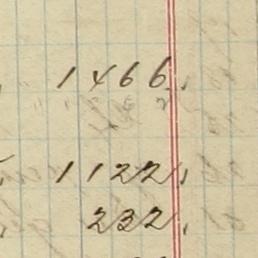 1466
1122
232